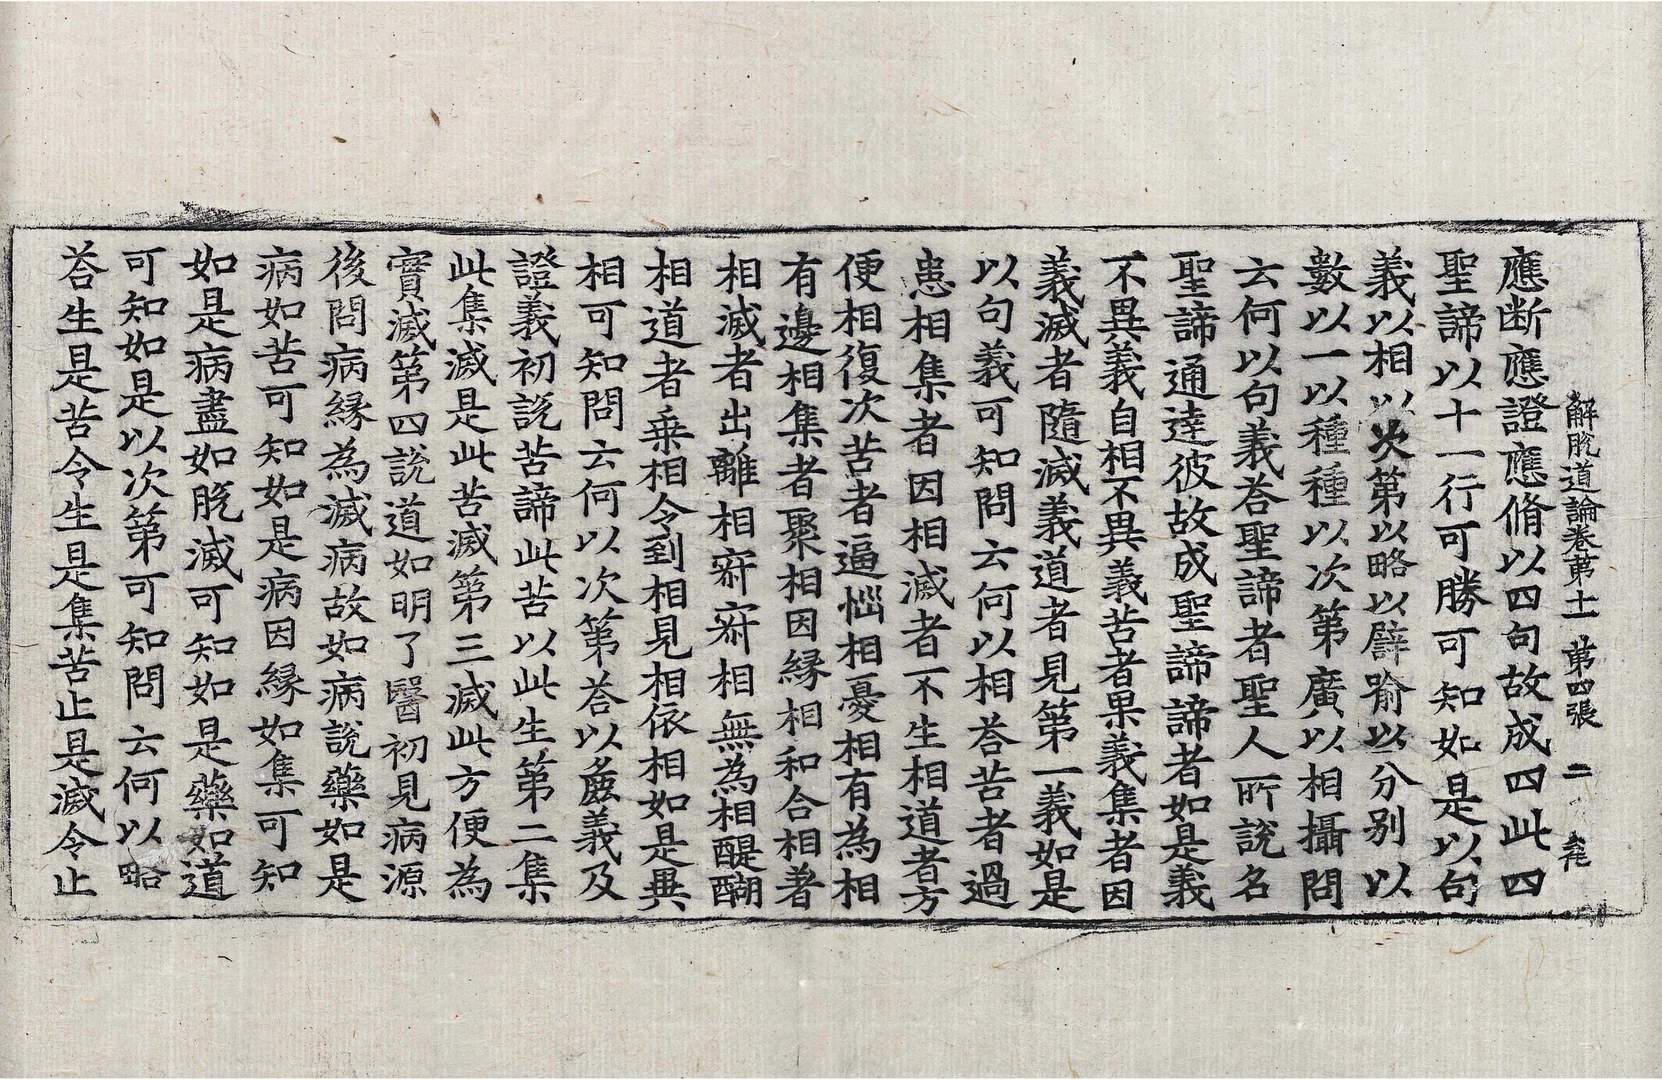 解脫道論卷第十一 第四張 二
應断應證應脩以四句故成四此四
聖諦以十一行可勝可知如是以句
義以相以次第以略以譬喻以分别以
數以一以種種以次第廣以相攝問
云何以句義荅聖諦者聖人所說名
聖諦通達彼故成聖諦諦者如是義
不異義自相不異義苦者果義集者因
義滅者隨滅義道者見第一義如是
以句義可知問云何以相荅苦者過
患相集者因相滅者不生相道者方
便相復次苦者逼惱相憂相有為相
有邊相集者聚相因縁相和合相著
相滅者出離相寂寂相無為相醍醐
相道者乗相令到相見相依相如是異
相可知問云何以次第荅以麁義及
證義初說苦諦此苦以此生第二集
此集滅是此苦滅第三滅此方便為
實滅第四說道如明了醫初見病源
後問病縁為滅病故如病說藥如是
病如苦可知如是病因縁如集可知
如是病盡如脫滅可知如是藥如道
可知如是以次第可知問云何以略
荅生是苦令生是集苦止是滅令止